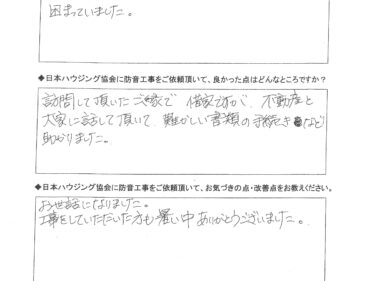 困っていました。
◆日本ハウジング協会に防音工事をご依頼頂いて、良かった点はどんなところですか?
訪問して頂いたご縁で 借家ですが、不動産と
大家に話して頂いて、難かしい書類の手続きなど
助かりました。
◆日本ハウジング協会に防音工事をご依頼頂いて、お気づきの点・改善点をお教えください。
お世話になりました。
工事をしていただいた方も暑い中ありがとうございました。